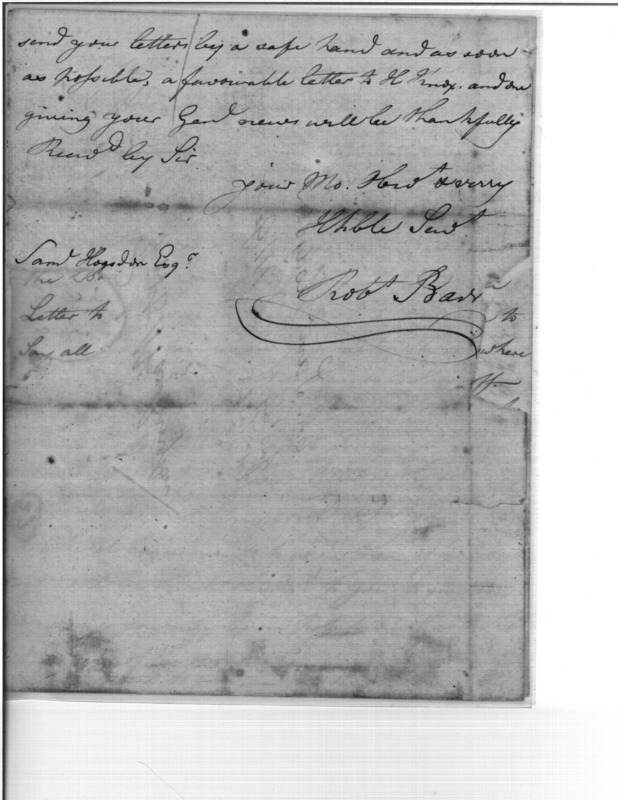 send your letters by a safe hand and as soon
as possible, a favourable letter to H Knox. and one
giving your Genl news will be thankfully
Recivd by Sir.
your Mo. Hbl & very
Hhble Servt
Robt Barr
Saml Hogsdon Esqr
the
Letter to
Say all
to
where